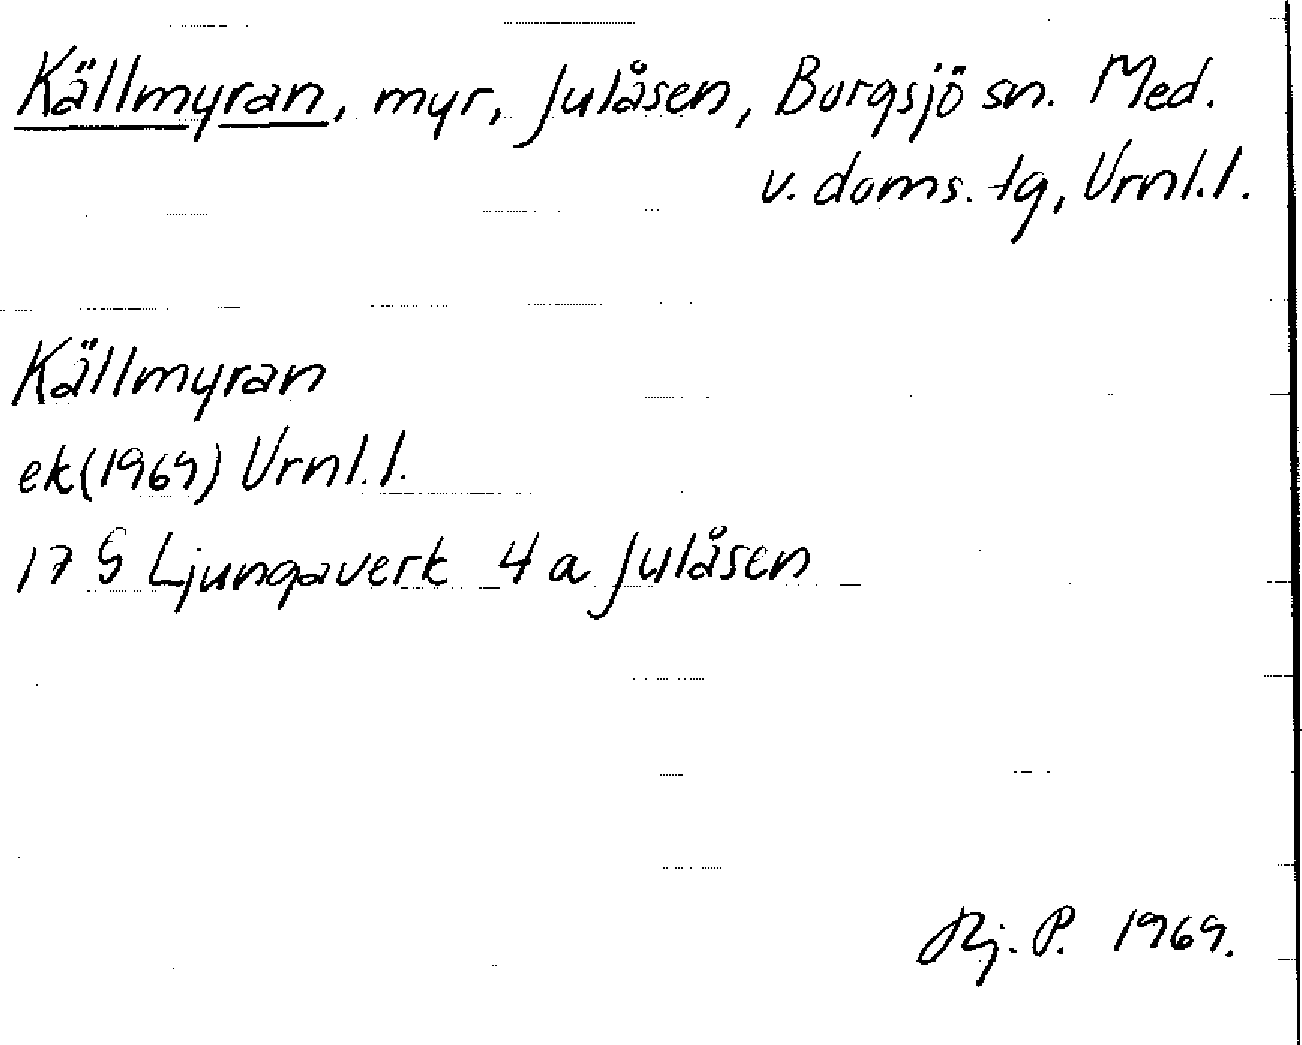 Källmyran, myr, Julåsen, Borgsjö sn. Med.
v. doms. tg, Vrnl.l.
Källmyran
ek (1969) Vrnl.l.
17 G Ljungaverk 4 a Julåsen
Rj. P. 1969.